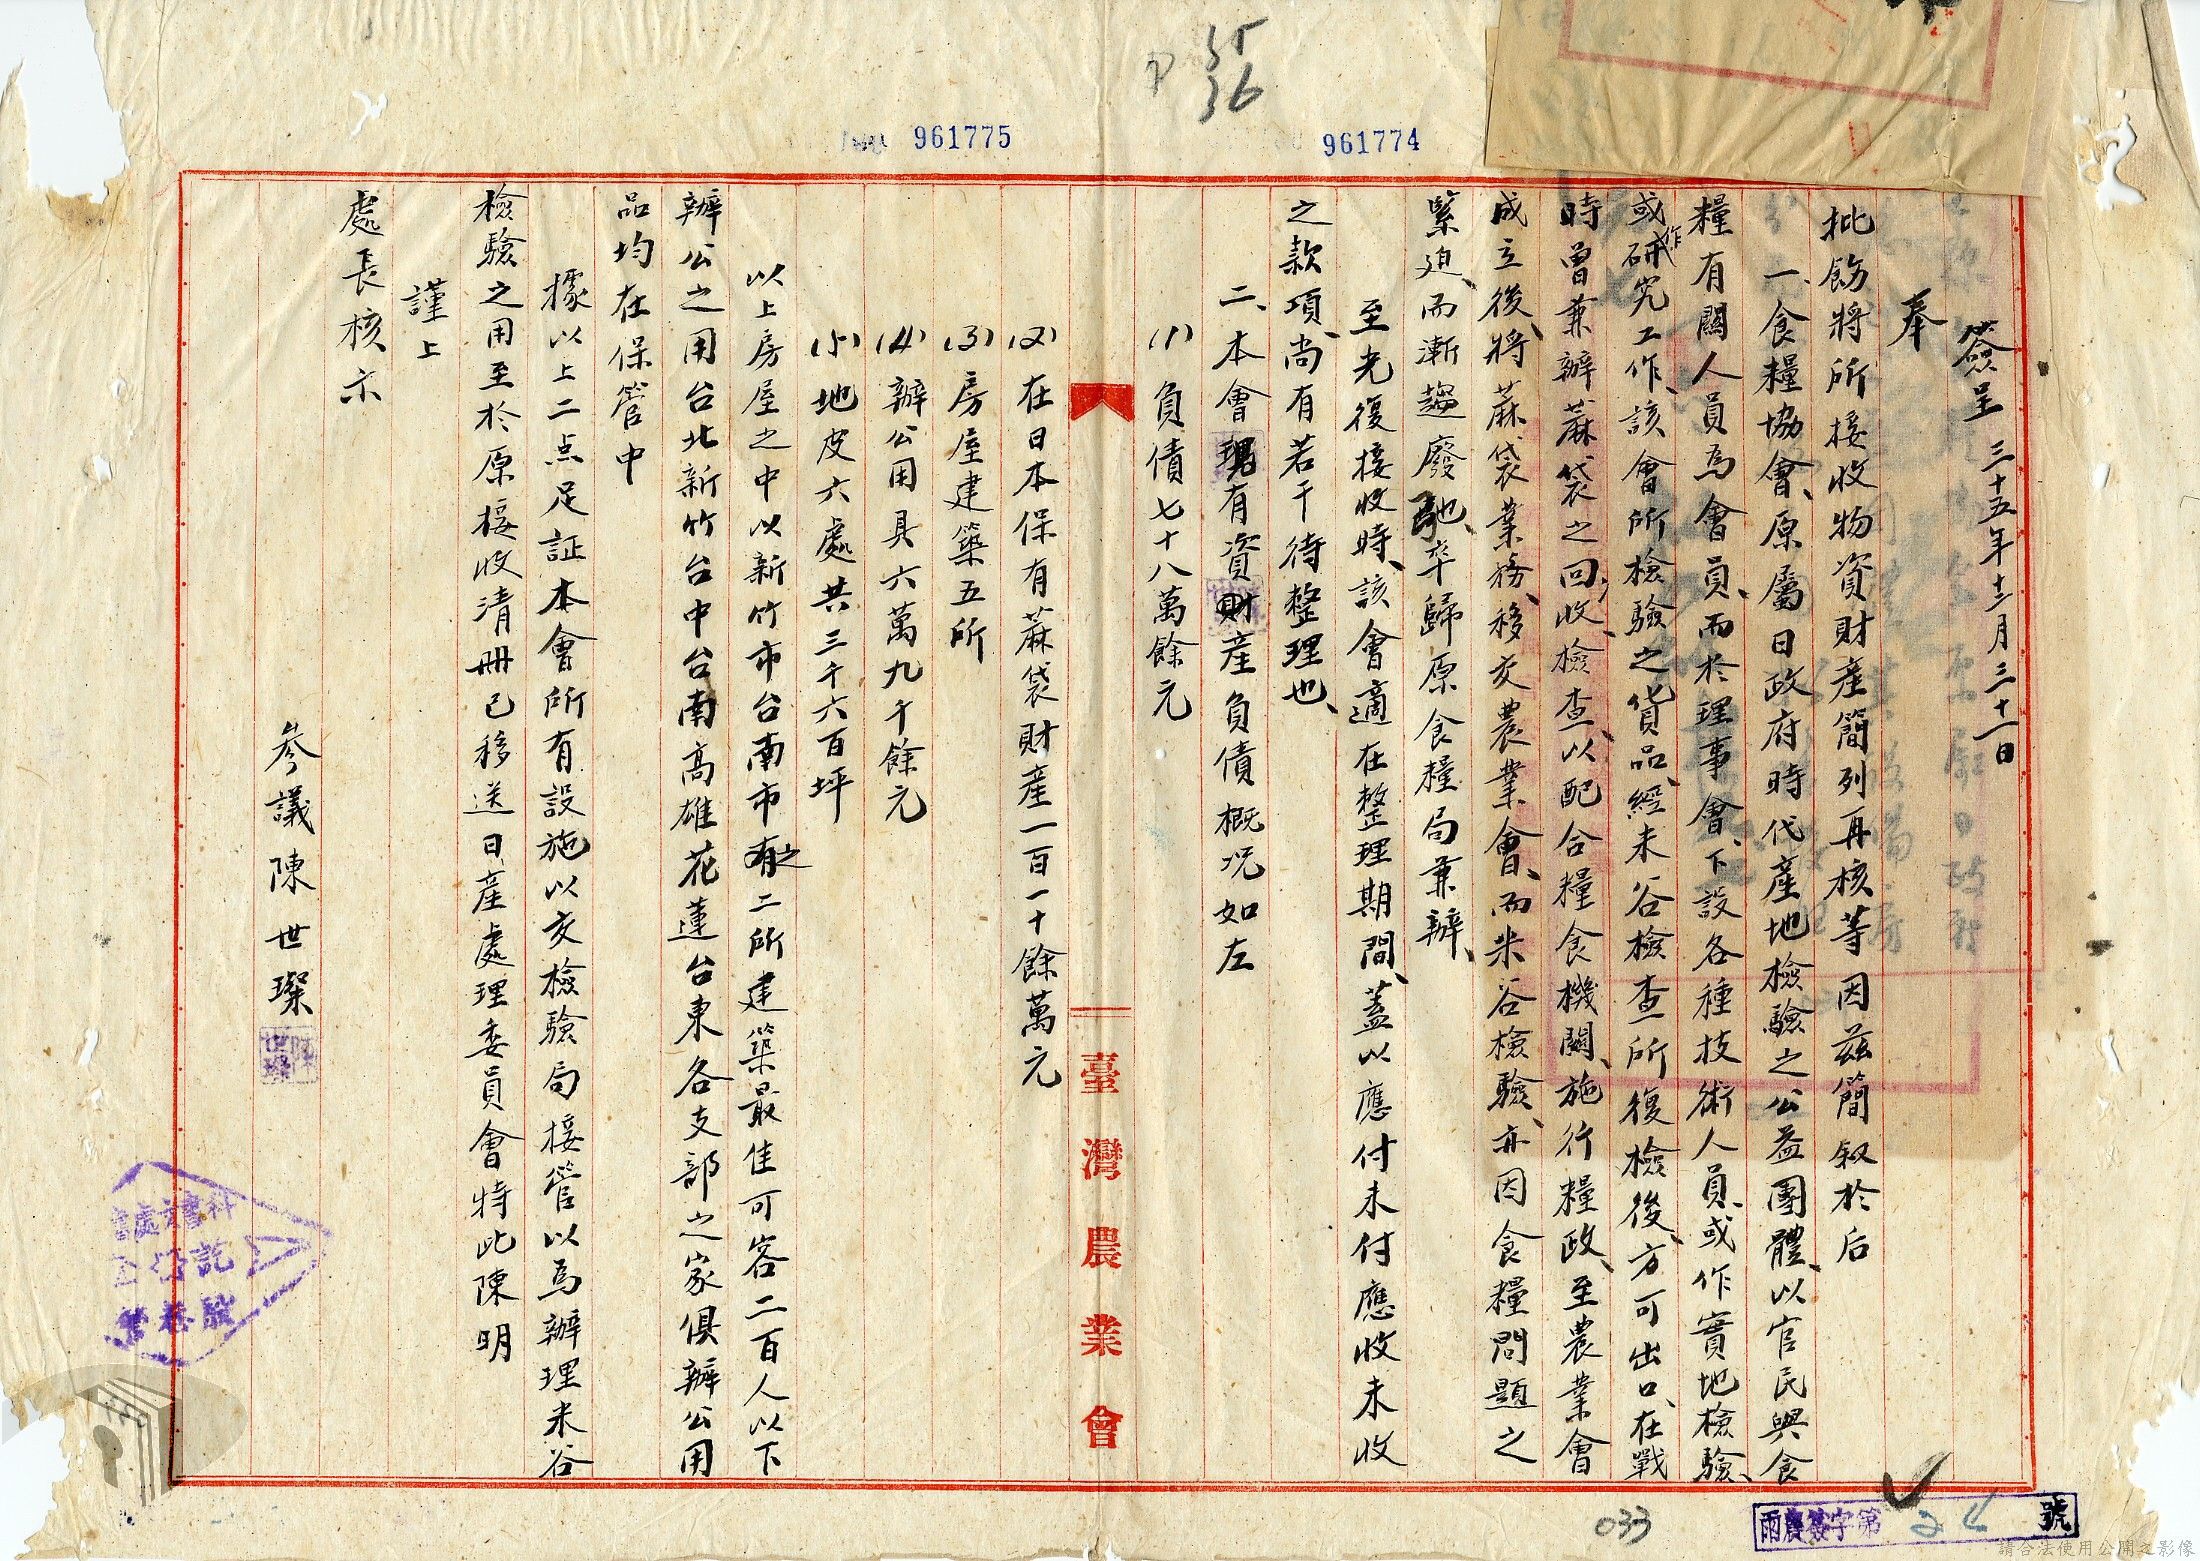 961775
961774
簽呈 三十五年十二月三十一日
奉
批飭將所接收物資財產簡列再核等因茲簡叙於后
一、食糧協會、原屬日政府時代產地檢驗之公益團體、以官民與食
糧有關人員為會員、而於理事會、下設各種技術人員、或作實地檢驗、
或作研究工作、該會所檢驗之貨品、經未谷檢查所復檢後、方可出口、在戰
時曾兼辦蔴袋之回收、檢查、以配合糧食機關、施行糧政、至農業會
成立後、將蔴袋業務、移交農業會、而米谷檢驗、亦因食糧問題之
緊迫、而漸趨廢馳、卒歸原食糧局兼辦、
至光復接收時、該會適在整理期間、蓋以應付未付應收未收
之款項、尚有若干待整理也、
二、本會現有資財產負債概況如左
(1) 負債七十八萬餘元
臺灣農業會
(2) 在日本保有蔴袋財產一百一十餘萬元
(3) 房屋建築五所
(4) 辦公用具六萬九千餘元
(5) 地皮六處共三千六百坪
以上房屋之中以新竹市台南市有之二所建築最佳可容二百人以下
辦公之用台北新竹台中台南高雄花蓮台東各支部之家俱辦公用
品均在保管中
據以上二点足証本會所有設施以交檢驗局接管以為辦理米谷
檢驗之用至於原接收清冊已移送日產處理委員會特此陳明
謹上
處長核示
參議陳世璨
033
號
請合法使用公開之影像